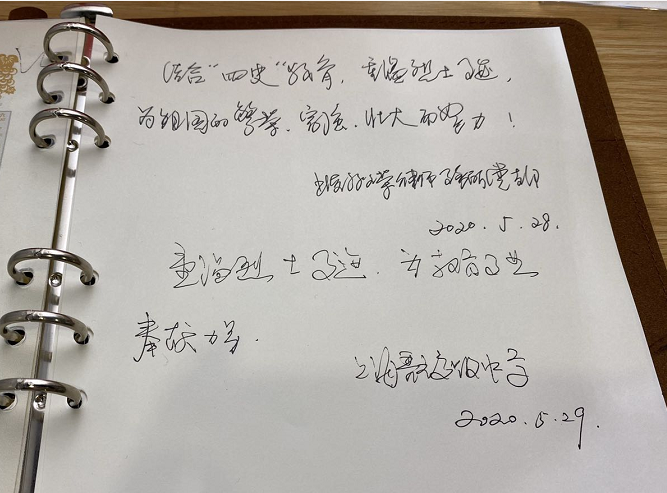 结合“四史”教育，重温烈士事迹，
为祖国的繁荣、富强、壮大而努力！
大学 党支部
2020.5.28.
重温烈士事迹，为教育事业
奉献力量.
上海 中学
2020.5.29.